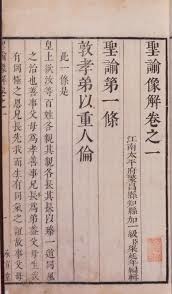 聖諭像解卷之一
江南太平府繁昌縣知縣加一級梁延年編輯
聖諭第一條
敦孝弟以重人倫
此一條是
皇上欲汝等百姓各親其親各長其長以臻一道同風
之治也善事父母爲孝善事兄長爲弟蓋父母生我
有罔極之恩兄長先我而生有同氣之誼故事父母
聖諭像解卷之一